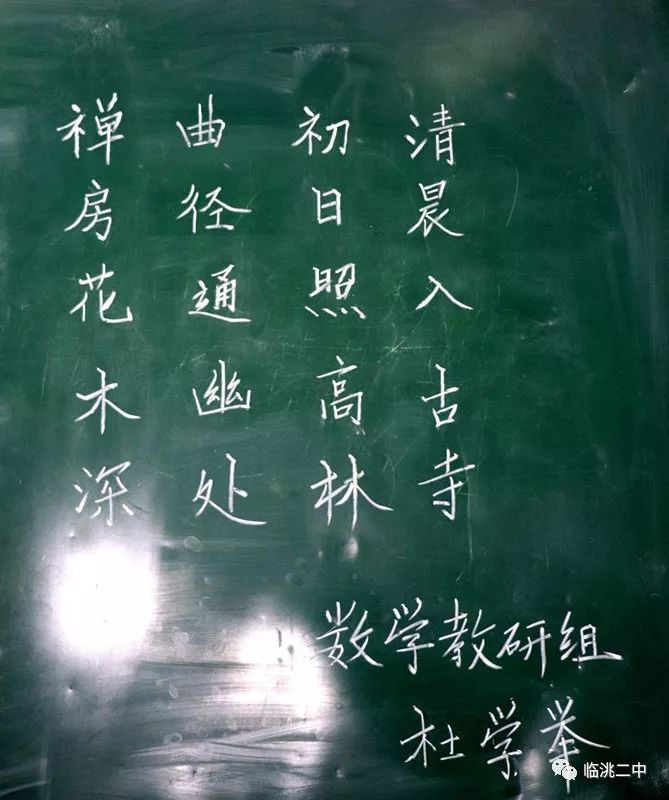 清晨入古寺
初日照高林
曲径通幽处
禅房花木深
数学教研组
杜学举
临洮二中